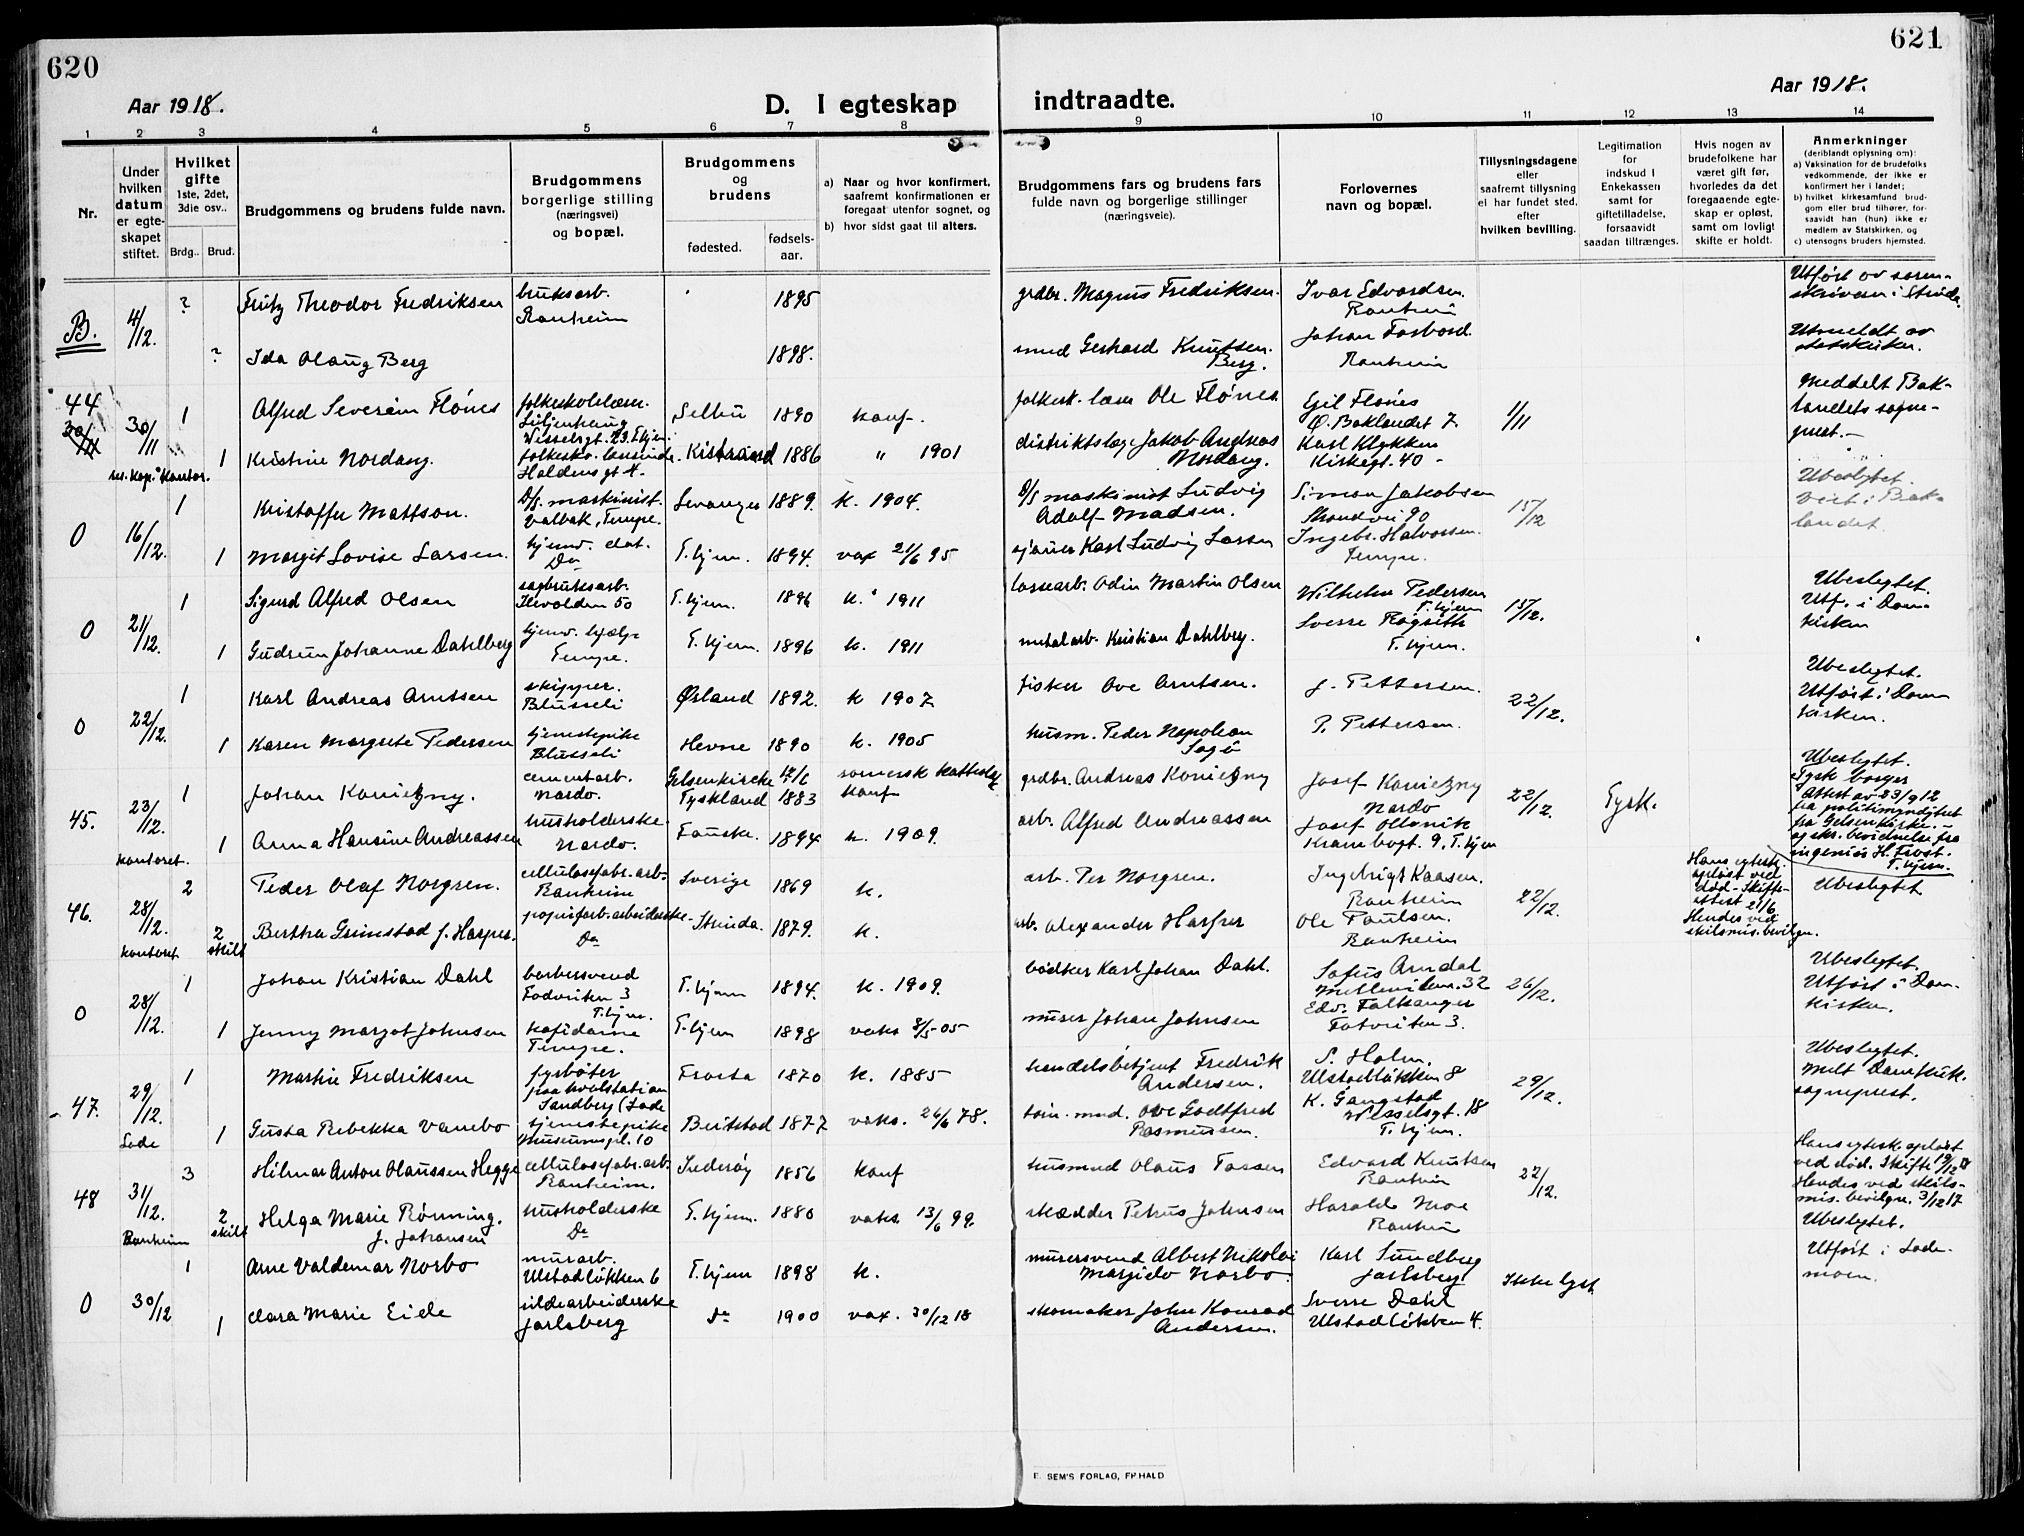 620
621
Aar 1918.
D. I egteskap
indtraadte.
Aar 1918.
1 2 3 4 5 6 7 8 9 10 11 12 13 14
Nr.
Under hvilken datum er egte-skapet stiftet.
Hvilket gifte 1ste, 2det, 3die osv..
Brdg..
Brud.
Brudgommens og brudens fulde navn.
Brudgommens borgerlige stilling (næringsvei) og bopæl.
Brudgommens og brudens
fødested.
fødsels-aar.
a) Naar og hvor konfirmert, saafremt konfirmationen er foregaat utenfor sognet, og
b) hvor sidst gaat til alters.
Brudgommens fars og brudens fars fulde navn og borgerlige stillinger (næringsveie).
Forlovernes navn og bopæl.
Tillysningsdagene eller saafremt tillysning ei har fundet sted, efter hvilken bevilling.
Legitimation for indskud i Enkekassen samt for giftetilladelse, forsaavidt saadan tiltrænges.
Hvis nogen av brudefolkene har været gift før, hvorledes da det foregaaende egte-skap er opløst, samt om lovligt skifte er holdt.
Anmerkninger
(deriblandt oplysning om):
a) Vaksination for de brudefolks vedkommende, der ikke er konfirmert her i landet;
b) hvilket kirkesamfund brud-gom eller brud tilhører, for-saavidt han (hun) ikke er medlem av Statskirken, og
c) utensogns bruders hjemsted.
B. 4/12. ? Fritz Theodor Fredriksen bruksarb. Ranheim 1895 grdbr. Magnus Fredriksen. Ivar Edvardsen. Ranheim Utført av soren-skriveren i Strinda.
? Ida Olaug Berg 1898. smed Gerhard Knutsen Berg. Johan Forbord Ranheim Utmeldt av statskirken.
44 30/11 30/11 1 Alfred Severin Flønes folkeskolelærer. Liljenhaug Wesselsgt. 23. T.hjem. Selbu 1890 konf. folkesk. lærer Ole Flønes Egil Flønes Ø. Baklandet 7. 1/11 Meddelt Bak-landets sogne-prest.
res. kap.s kontor. 1 Kristine Nordang. folkesko. lærerinde Haldensgt. 4. Kistrand 1886 " 1901 distriktslæge Jakob Andreas Nordang. Karl Klykken Kirkegt. 40
0 16/12. 1 Kristoffer Mattson. D/S. maskinist. Valbak, Tempe. Levanger 1889. k. 1904. D/S maskinist Ludvig Adolf Madsen. Simon Jakobsen Strandvei 90 15/12 Ubeslegtet. Viet i Bak-landet.
1 Margit Lovise Larsen. hjemv. dat. Do T.hjem. 1894. vax 21/6 95 sjauer Karl Ludvig Larsen Ingebr. Halvorsen. Tempe.
0 21/12. 1 Sigurd Alfred Olsen sagbruksarb. Ilevolden 50 T.hjem. 1896 k. 1911 lossearb. Odin Martin Olsen Wilhelm Pedersen T.hjem 15/12. Ubeslegtet. Utf. i Dom-kirken
1 Gudrun Johanne Dahlberg hjemv. hjælp Tempe. T.hjem. 1896 k. 1911 metalarb. Kristian Dahlberg. Sverre Rogseth T.hjem.
0 22/12. 1 Karl Andreas Arntsen skipper. Blusseli Ørland 1892. k 1907 fisker Ove Arntsen. J. Pettersen. 22/12. Ubeslegtet. Utført i Dom-kirken.
1 Karen Margrete Pedersen tjenestepike Blusseli Hevne 1890 k. 1905 husm. Peder Napoleon Sagø P. Pettersen.
45. 23/12. kontoret. 1 Johan Konietzny. cementarb. Nardo. Gelsenkirche Tyskland 1883 romersk katholsk konf grdbr. Andreas Konietzny Josef Konietzny Nardo 22/12. Tysk. Ubeslegtet. Tysk borger Attest av 23/9 12 fra politimyndighet fra Gelsenkirke. og skr. bevidnelse fra ingeniør H. Frost. T.hjem.
1 Anna Hansine Andreassen husholderske Nardo. Fauske. 1894 k. 1909. arb. Alfred Andreassen Josef Kranbogt. 9. T.hjem
46. 28/12. kontoret 2 Peder Olaf Norgren. cellulosefabr. arb. Ranheim Sverige 1869 k. arb. Per Norgren. Ingebrigt Kaasen. Ranheim 22/12. Hans egtesk. opløst ved død. Skifte-attest 21/6. Hendes ved skilsmis. bevilgn. Ubeslegtet
2 skilt Bertha Grimstad f. Harper. papirfarb. arbeiderske Do Strinda. 1879. k. arb. Alexander Harper Ole Paulsen. Ranheim
0 28/12. 1 Johan Kristian Dahl barbersvend Fodviken 3 T.hjem. T.hjem 1894. k. 1909. bødker Karl Johan Dahl. Sofus Arndal Mellemilen. 32 26/12. Ubeslegtet. Utført i Dom-kirken.
1 Jenny Margot Johnsen kafédame Tempe. T.hjem 1898 vaks 8/5-05 murer Johan Johnsen Edv. Falkanger Fotviken 3.
47. 29/12. Lade 1 Martin Fredriksen fyrbøter paa hvalstation Sandberg (Lade Frosta 1870 k. 1885 handelsbetjent Fredrik Andersen. S. Holm. Ulstadløkken 8 29/12. Ubeslegtet. Melt Domkirk. sogneprest.
1 Gusta Rebekka Vanebo tjenestepike Museumspl. 10 Beitstad 1877 vaks. 26/6 78. smed. Ove Godtfred Rasmussen. K. Gangstad Wesselsgt. 18 T.hjem.
48 31/12. Ranheim 3 Hilmar Anton Olaussen Hegge cellulosefabr. arb. Ranheim. Inderøy 1856 konf husmand Olaus Tossen Edvard Knutsen Ranheim 22/12. Hans egtesk. opløst ved død. Skifte 19/12 18 Hendes ved skils-mis. bevilgn. 3/12 17 Ubeslegtet.
2 skilt Helga Marie Rønning. f. Johansen husholderske Do T.hjem. 1880 vaks. 13/6 99. skrædder Petrus Johnsen Harald Moe Ranheim
0 30/12 1 Arne Valdemar Norbo murarb. Ulstadløkken 6 T.hjem 1898 k. murersvend Albert Nikolai Norbo. Karl Sundberg Jarlsberg Ikke lyst Utført i Lade-moen.
1 Clara Marie Eide sildearbeiderske Jarlsberg Do 1900 vax. 30/12 18 skomaker John Konrad Andersen. Sverre Dahl Ulstadløkken 4.
E. SEM'S FORLAG, FR.HALD